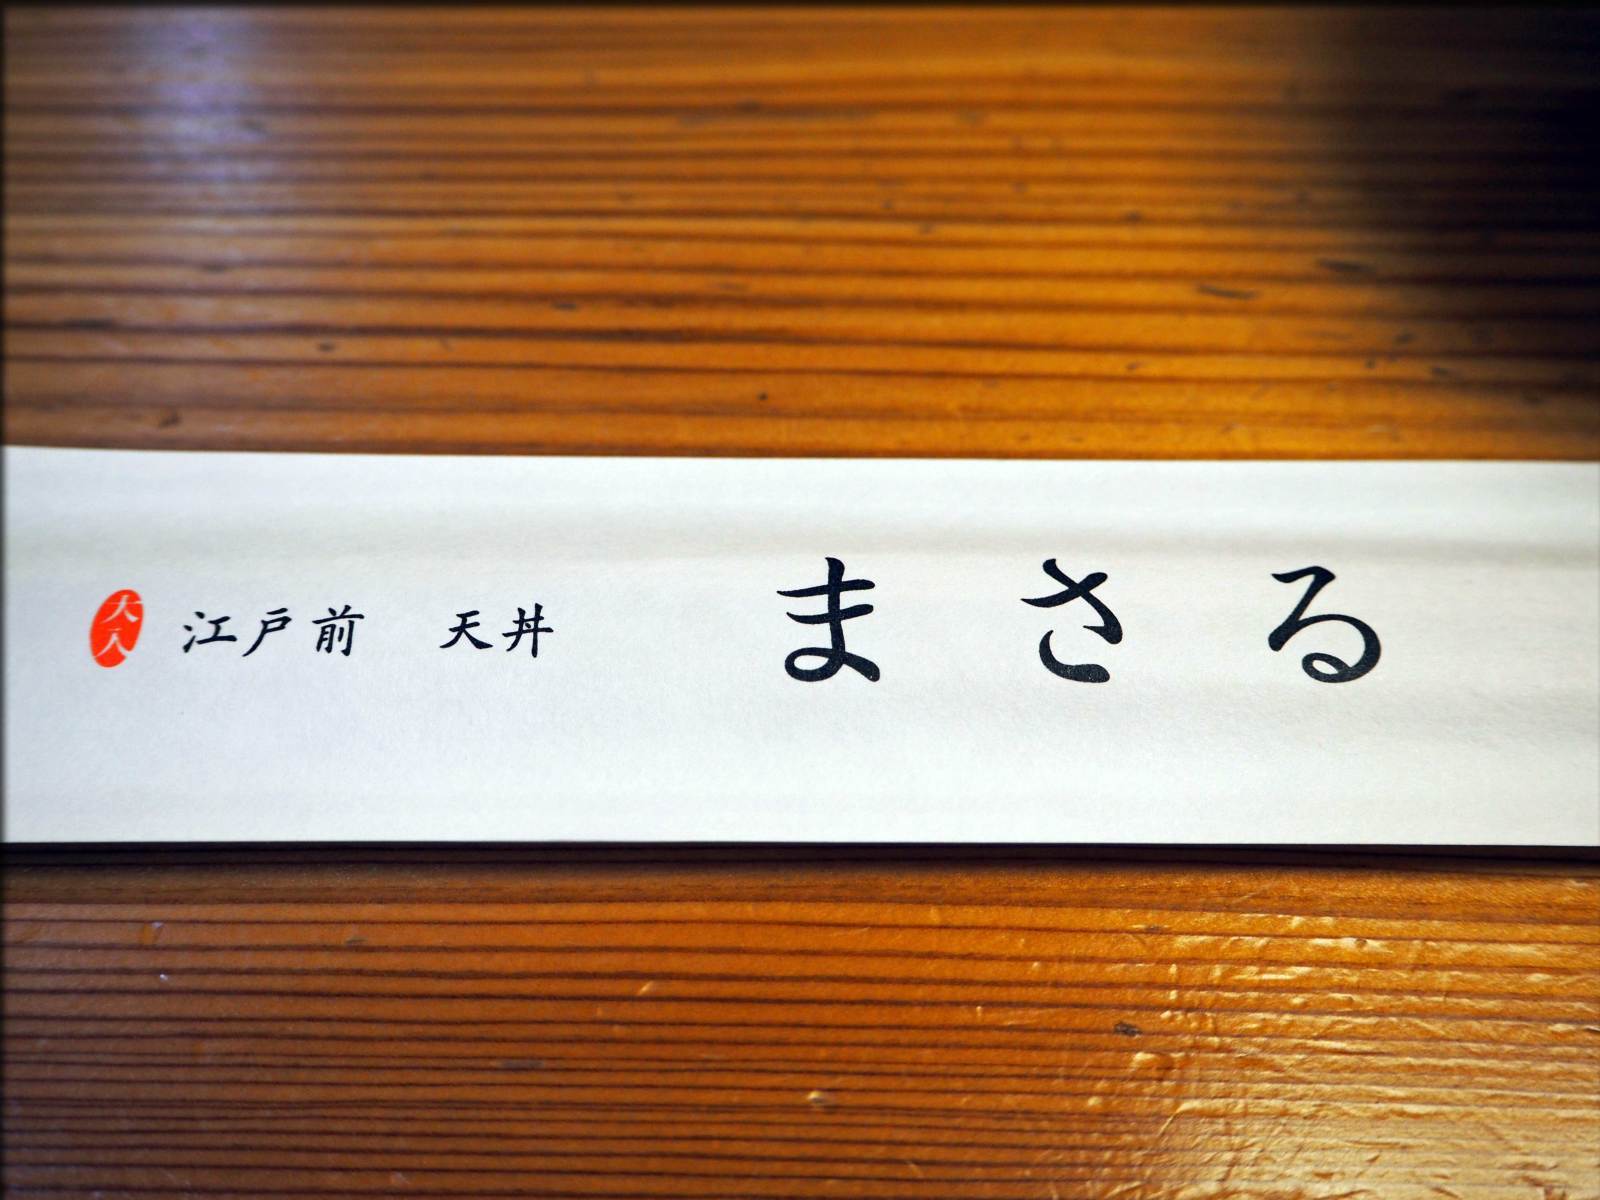 大入 江戸前 天丼 まさる